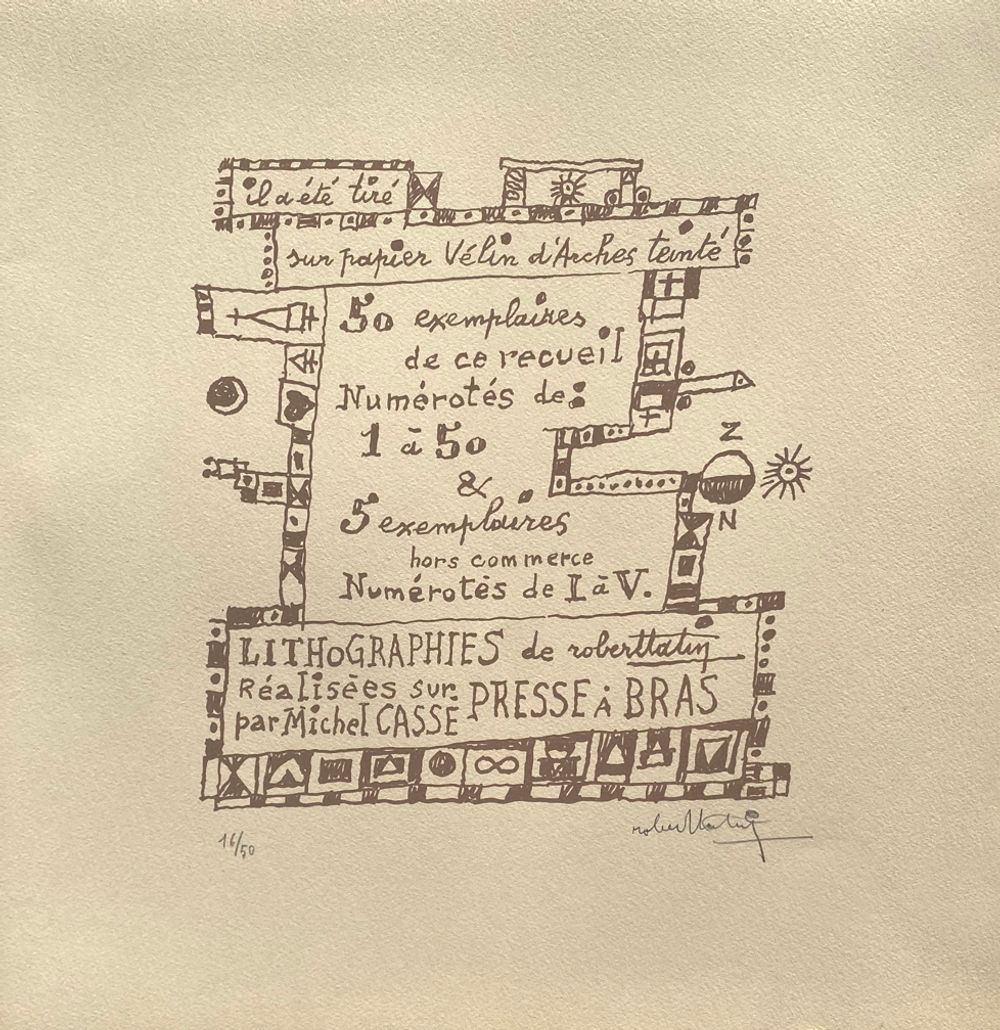 il a été tiré
sur papier Vélin d'Arches teinté
50 exemplaires
de ce recueil
Numérotés de:
1 à 50
&
5 exemplaires
hors commerce
Numérotès de I à V.
Z
N
LITHOGRAPHIES de roberttatin
Réalisées sur PRESSE À BRAS
par Michel CASSÉ
16/50
roberttatin